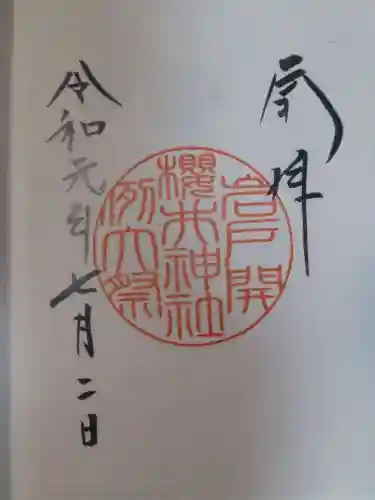 奉拝
岩戸開
櫻井神社
例大祭
令和元年七月二日